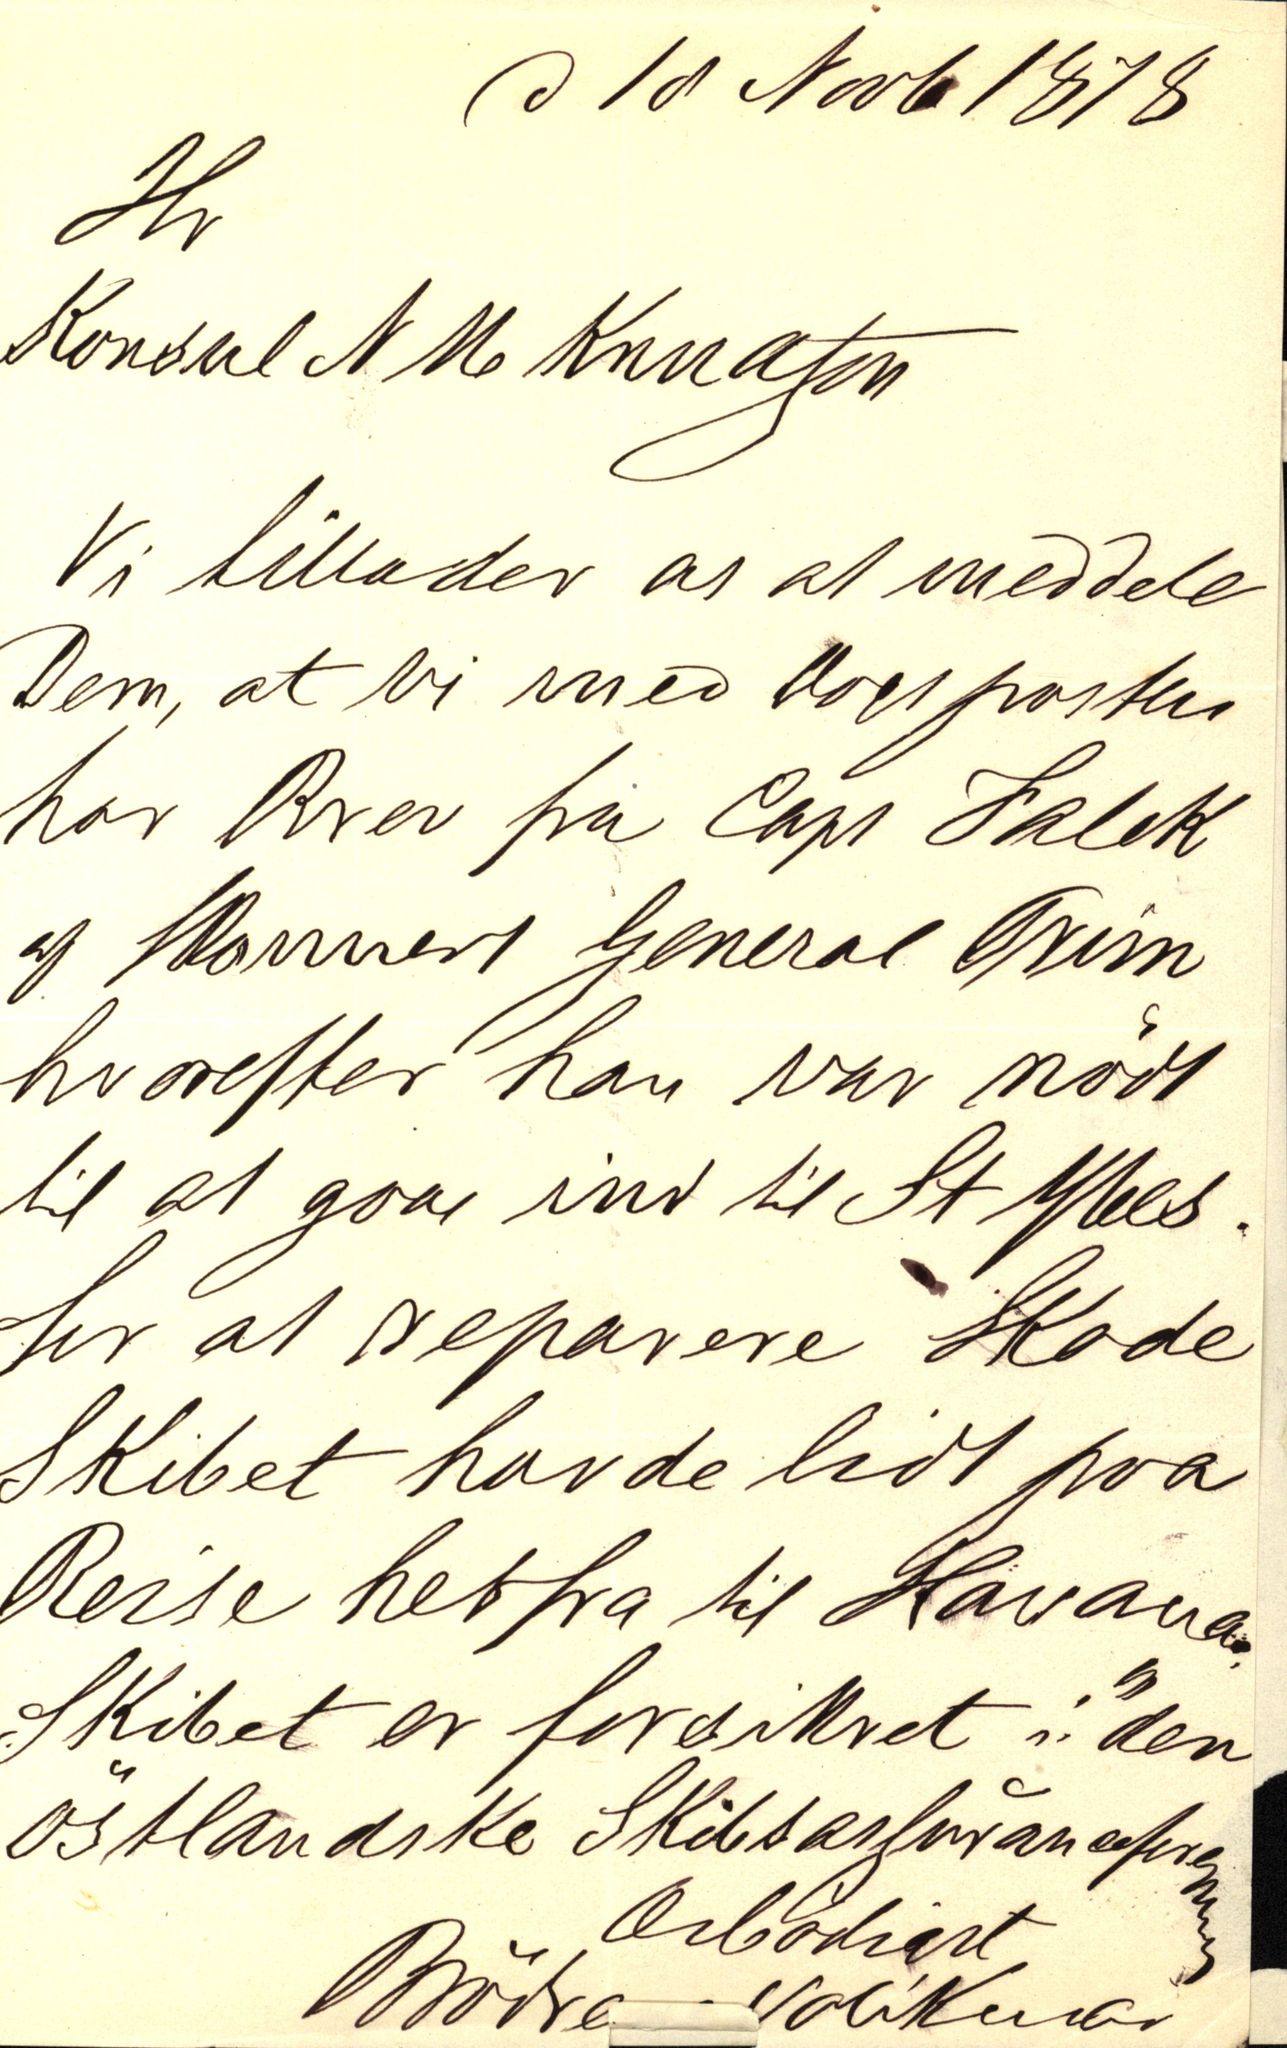 d 18 Novb 1878
Hr
Konsul N M Knudtzon
Vi tillader os at meddele
Dem, at vi med Dagsposten
har Brev fra Capt Falck
af Skonnert General Prim
hvorefter han var nödt
til at gaae ind til St Ybes.
for at reparere Skade
Skibet havde lidt paa
Reise herfra til Havana.
Skibet er forsikret i "den
östlandske Skibsassuranceforening
Ærbödigst
Brödrene Volckmar